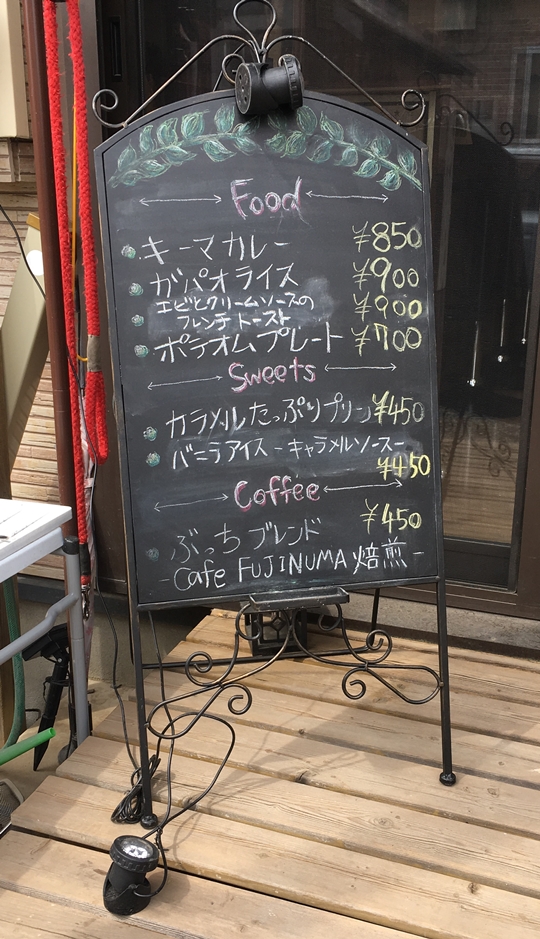 Food
キーマカレー ¥850
ガパオライス ¥900
エビとクリームソースの ¥900
フレンチトースト
ポテオムプレート ¥700
Sweets
カラメルたっぷりプリン ¥450
バニラアイス－キャラメルソース－
¥450
Coffee
¥450
ぶっち ブレンド
-Cafe FUJINUMA 焙煎-